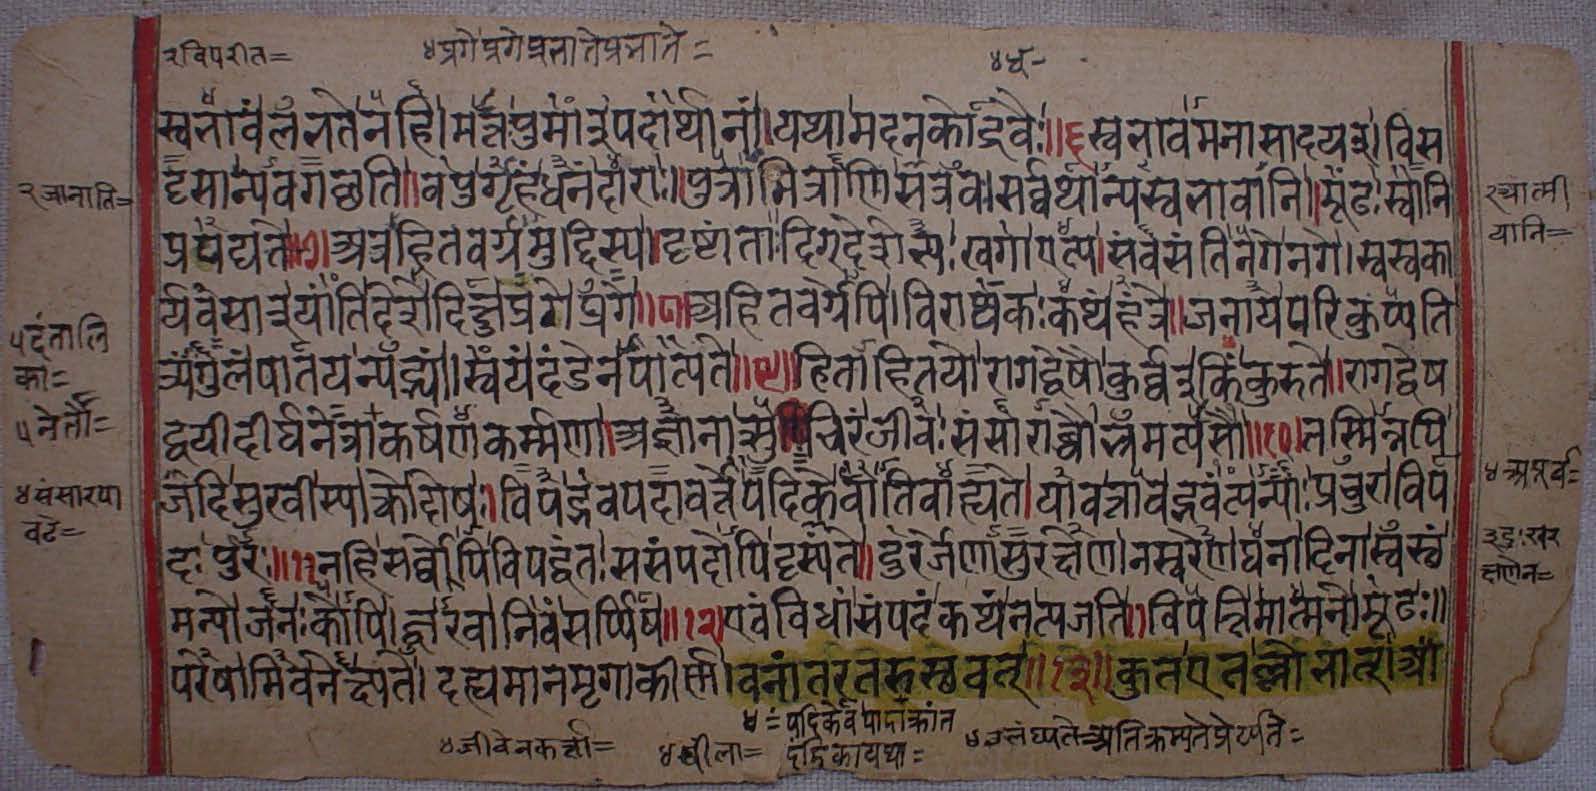 २ विपरीत=
४ प्रगे प्रगे प्रभाते प्रभाते=
स्वभावं लभते न हि। मत्तः पुमान् पदार्थानां। यथा मदनकोद्रवैः॥७ स्वभावमनासादयन् विस
दृसान्यवगच्छति॥ वपुर्गृहं धनं दाराः। पुत्रा मित्राणि सत्रवः। सर्वथान्यस्वभावानि। मूढः स्वानि
प्रपद्यते॥८॥ अत्र हितवर्गमुद्दिस्य। दृष्टांतः। दिग्देशेभ्यः खगा एत्य। संवसंति नगे नगे। स्वस्वका
र्यवसात् यांति देशे दिक्षु प्रगे प्रगे॥९॥ अहितवर्गेपि। विराधकः कथं हंत्रे। जनाय परिकुप्यति
त्र्यंगुलं पातयन् पद्भ्यां। स्वयं दंडेन पात्यते॥१०॥ हिताहितयो रागद्वेषौ कुर्वन् किं कुरुते॥ रागद्वेष
द्वयी दीर्घनेत्राकर्षणकर्म्मणा। अज्ञानात् सुचिरं जीवः संसाराब्धौ भ्रमत्यसौ॥ तस्मिन्नपि
जदि सुखी स्यात् को दोषः। विपद्भवपदावर्त्ते पदिकेवातिवाह्यते। यावत्तावद्भवंत्यन्याः प्रचुरा विप
दः पुरः॥ नहि सर्वोपि विपद्वंतः ससंपदोपि दृस्यंते॥ दुरर्जेणासुरक्षेण। नस्वरेण धनादिना। स्वस्थं
मन्यो जनः कोपि। ज्वरवानिव सर्प्पिषा॥१३ एवंविधां संपदं कथं न त्यजति॥ विपत्तिमात्मनो मूढः॥
परेषामिव नेक्ष्यते। दह्यमानमृगाकीर्ण। वनांतरतरुस्थवत्॥ कुत एतल्लोभात्
२ जानाति=
५ दंतालि
का=
५ नेतौ=
यानि=
४ जीवेन कर्त्ता=
पदिकेव पादाक्रांत
यथा=